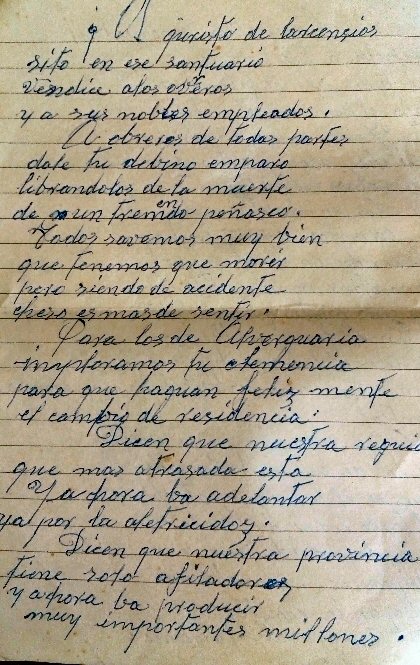 ¡ A quristo de larcensios
sito en ese santuario
Vendice alos overos
y a sus nobles empleados.
A obreros de todas partes
dale tu debino emparo
librandolos de la muerte
de un tremendo peñasco.
Todos savemos muy bien
que tenemos que morer
pero siendo de accidente
eheso es mas de sentir.
Para los de Alverguaria
imploramos tu clemencia
para que haguan feliz mente
el cambio de residencia.
Dicen que nuestra requi
que mas atrasada esta
Y ahora ba adelantar
ya por la aletricidaz.
Dicen que nuestra provincia
tiene solo afiladores
y ahora ba producir
muy importantes millones.